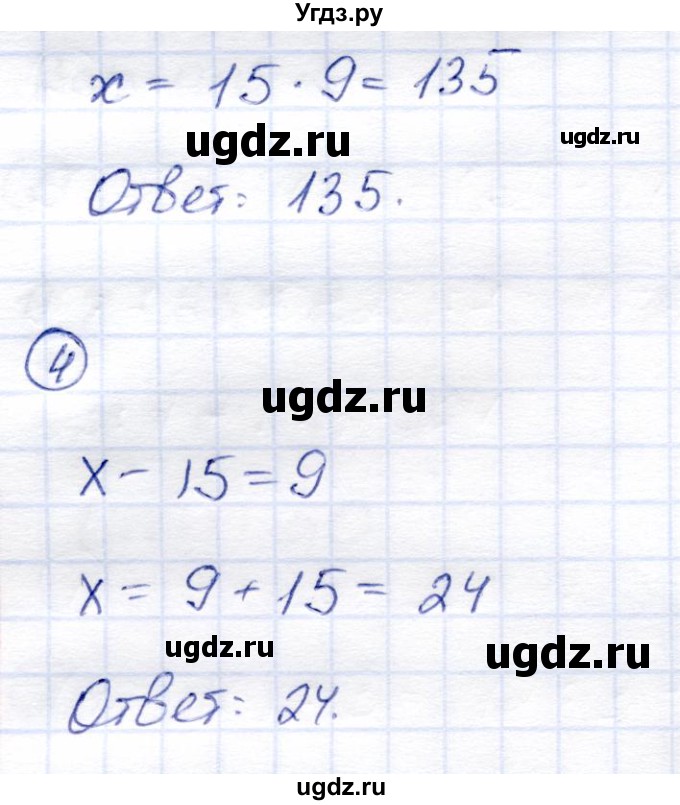 Угдз.ру
x = 15 · 9 = 135
ugdz.ru ugdz.ru
Ответ: 135.
4
ugdz.ru
x - 15 = 9
x = 9 + 15 = 24
ugdz.ru ugdz.ru
Ответ: 24.
ugdz.ru